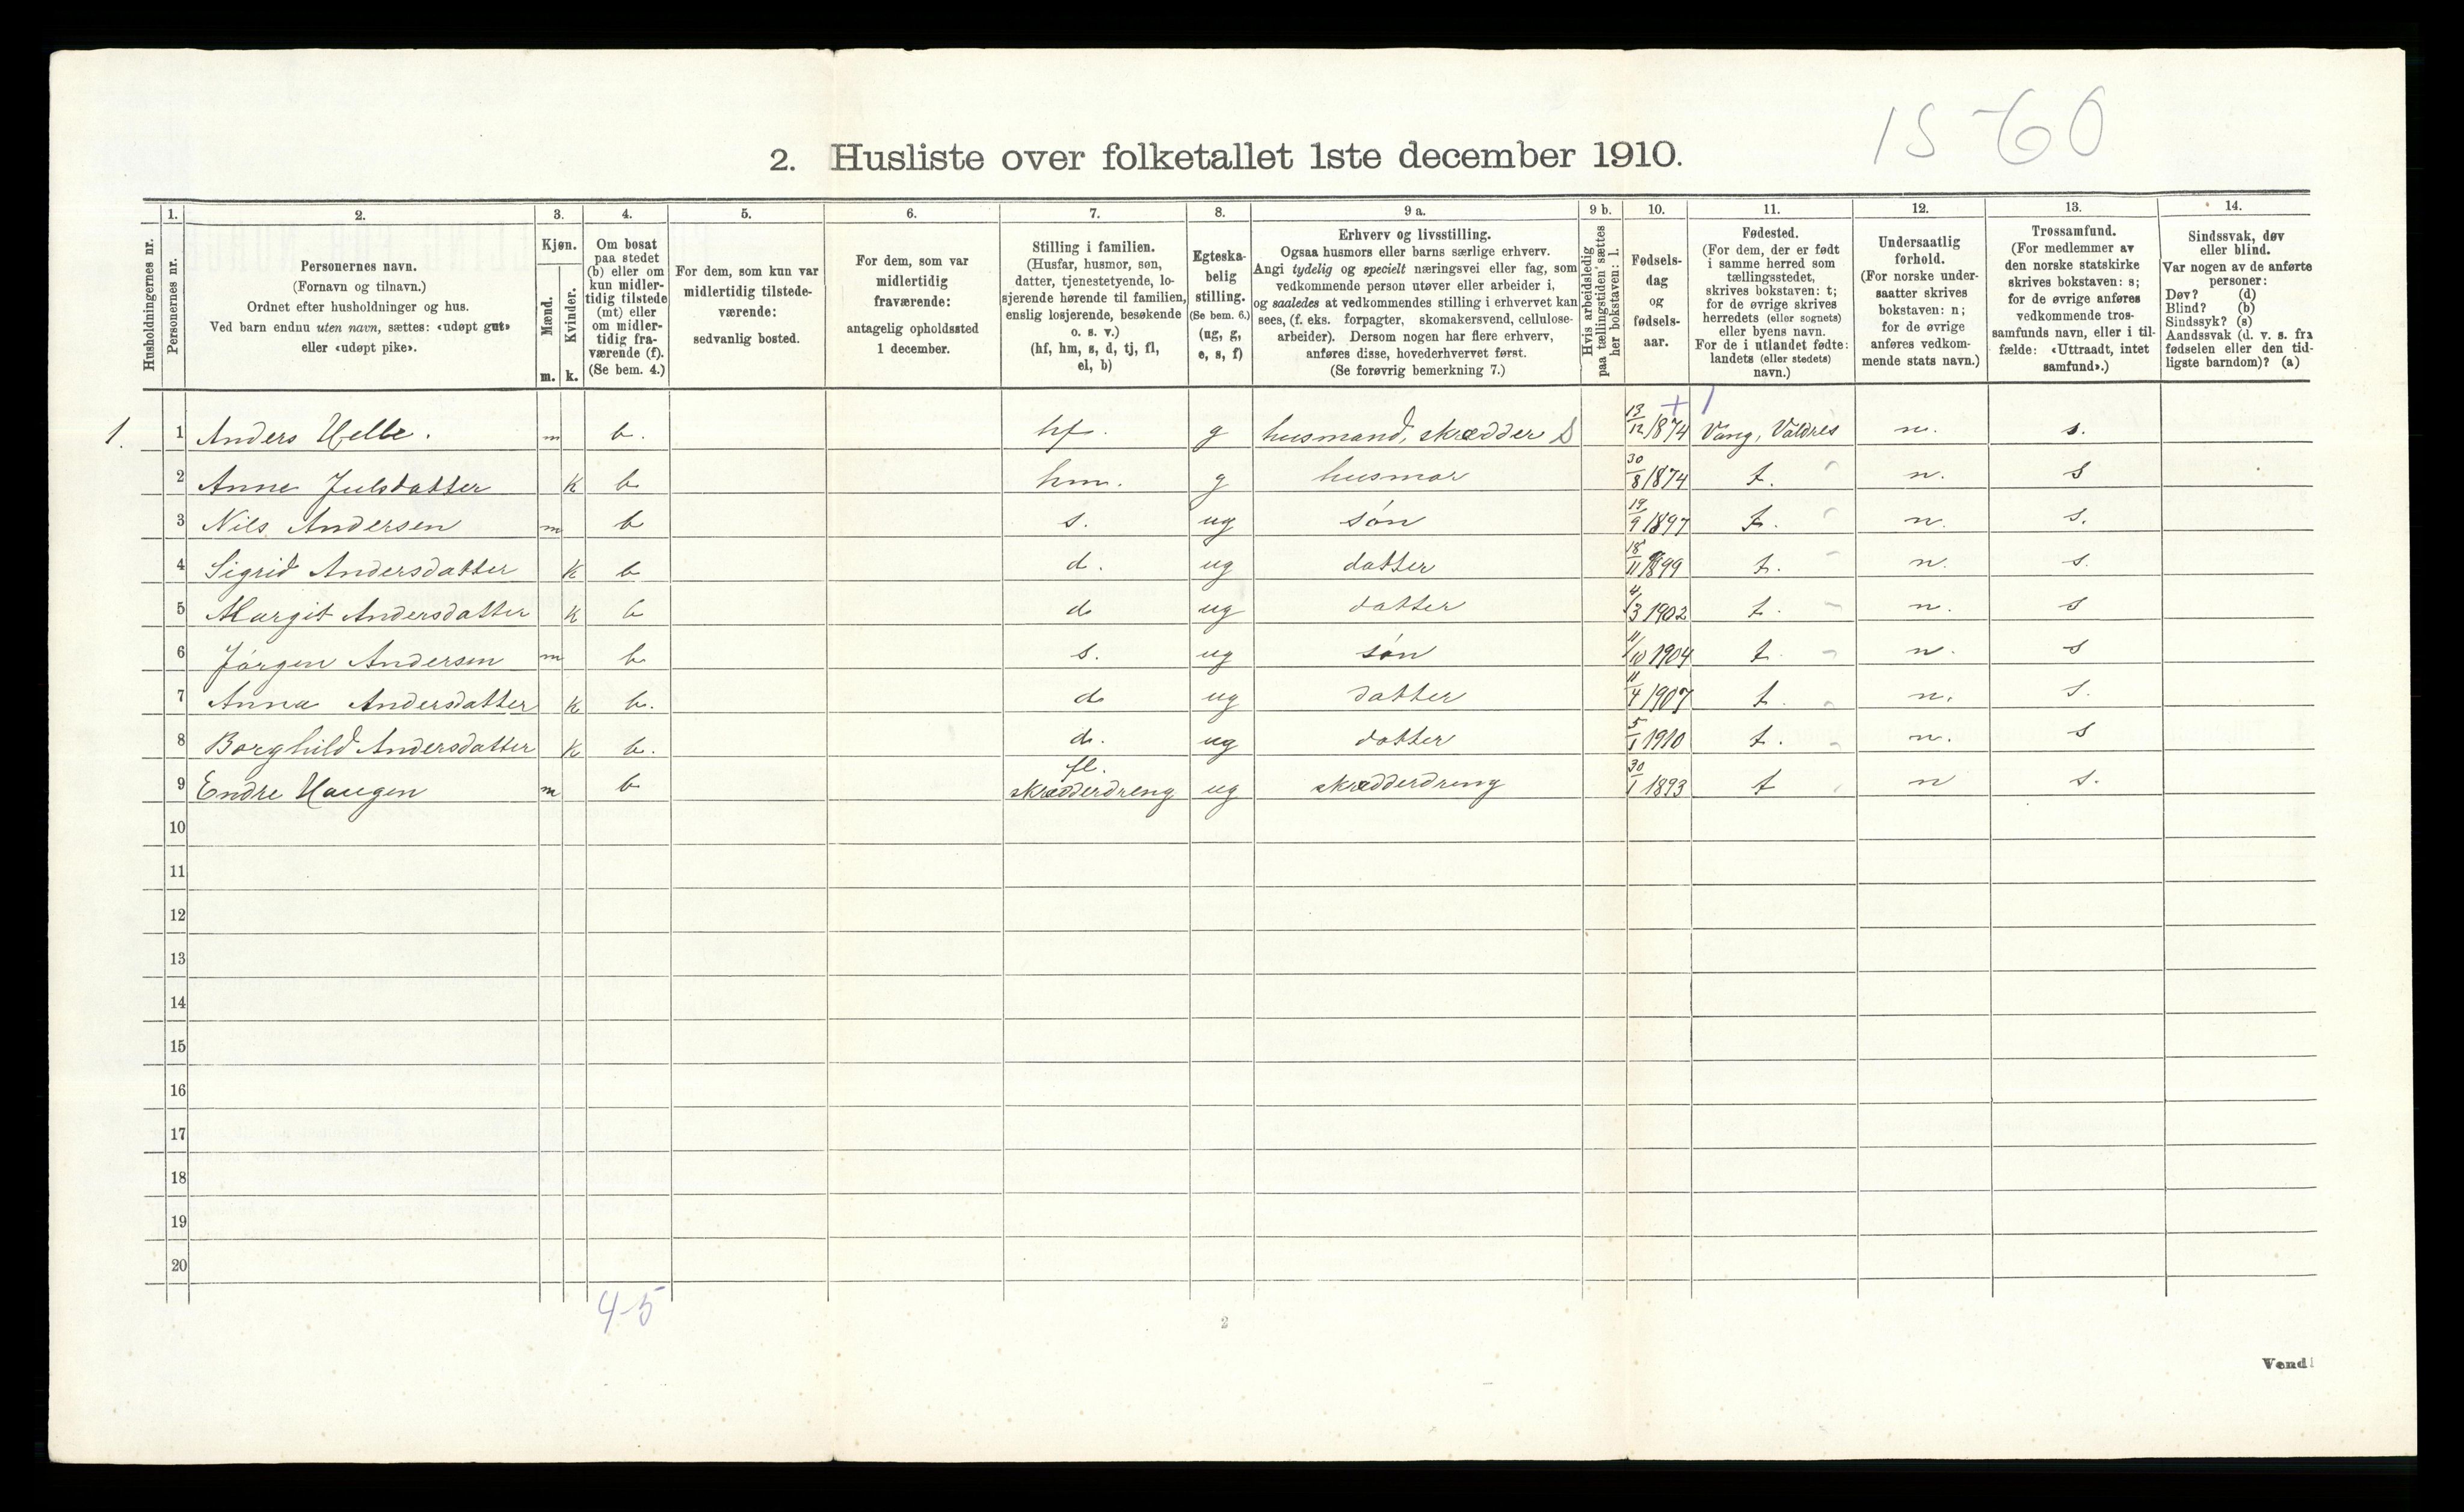 15 60
2. Husliste over folketallet 1ste december 1910.
Husholdningernes nr.
1.
Personernes nr.
2.
Personernes navn.
(Fornavn og tilnavn.)
Ordnet efter husholdninger og hus.
Ved barn endnu uten navn, sættes: «udøpt gut»
eller «udøpt pike».
3.
Kjøn.
Mænd.
m.
Kvinder.
k.
4.
Om bosat
paa stedet
(b) eller om
kun midler-
tidig tilstede
(mt) eller
om midler-
tidig fra-
værende (f).
(Se bem. 4.)
5.
For dem, som kun var
midlertidig tilstede-
værende:
sedvanlig bosted.
6.
For dem, som var
midlertidig
fraværende:
antagelig opholdssted
1 december.
7.
Stilling i familien.
(Husfar, husmor, søn,
datter, tjenestetyende, lo-
sjerende hørende til familien,
enslig losjerende, besøkende
o. s. v.)
(hf, hm, s, d, tj, fl,
el, b)
8.
Egteska-
belig
stilling.
(Se bem. 6.)
(ug, g,
e, s, f)
9 a.
Erhverv og livsstilling.
Ogsaa husmors eller barns særlige erhverv.
Angi tydelig og specielt næringsvei eller fag, som
vedkommende person utøver eller arbeider i,
og saaledes at vedkommendes stilling i erhvervet kan
sees, (f. eks. forpagter, skomakersvend, cellulose-
arbeider). Dersom nogen har flere erhverv,
anføres disse, hovederhvervet først.
(Se forøvrig bemerkning 7.)
9 b.
Hvis arbeidsledig
paa tællingstiden sættes
her bokstaven: l.
10.
Fødsels-
dag
og
fødsels-
aar.
11.
Fødested.
(For dem, der er født
i samme herred som
tællingsstedet,
skrives bokstaven: t;
for de øvrige skrives
herredets (eller sognets)
eller byens navn.
For de i utlandet fødte:
landets (eller stedets)
navn.)
12.
Undersaatlig
forhold.
(For norske under-
saatter skrives
bokstaven: n;
for de øvrige
anføres vedkom-
mende stats navn.)
13.
Trossamfund.
(For medlemmer av
den norske statskirke
skrives bokstaven: s;
for de øvrige anføres
vedkommende tros-
samfunds navn, eller i til-
fælde: «Uttraadt, intet
samfund».)
14.
Sindssvak, døv
eller blind.
Var nogen av de anførte
personer:
Døv? (d)
Blind? (b)
Sindssyk? (s)
Aandssvak (d. v. s. fra
fødselen eller den tid-
ligste barndom)? (a)
1. 1 Anders Helle. m b. hf. g husmand, skrædder S 13/12 1874 Vang, Valdres n. s.
2 Anne Julsdatter k b hm. g husmor 30/8 1874 t. n. s
3 Nils Andersen m b s. ug søn 19/9 1897 t. n. s.
4 Sigrid Andersdatter k b d. ug datter 18/11 1899 t. n. s.
5 Margit Andersdatter k b d ug datter 4/3 1902 t. n. s
6 Jørgen Andersen m b s. ug søn 11/10 1904 t. n. s
7 Anna Andersdatter k b. d ug datter 11/4 1907 t. n. s.
8 Borghild Andersdatter k b. d. ug datter 5/1 1910 t. n. s
9 Endre Haugen m b fl. skrædderdreng ug skrædderdreng 30/1 1893 t n s.
10
11
12
13
14
15
16
17
18
19
20
4-5
2
Vend!